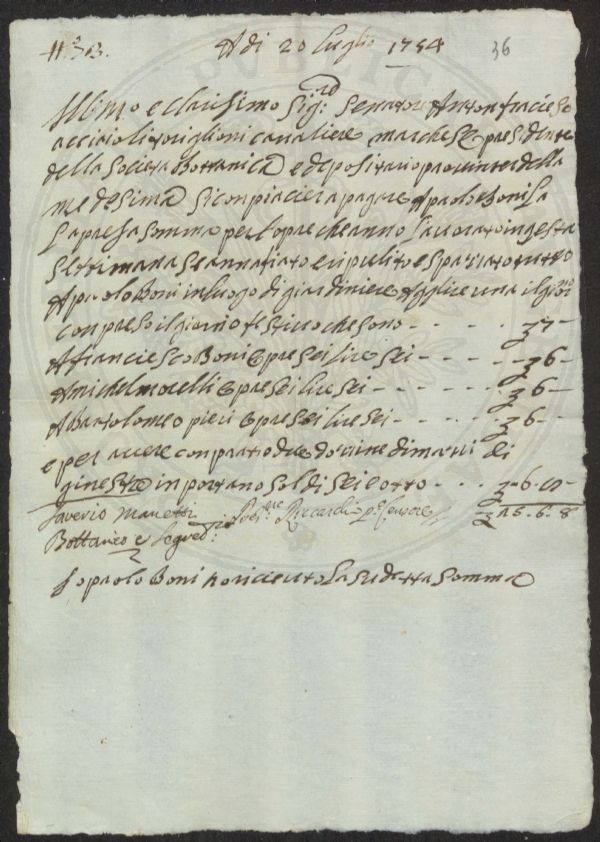 A di 20 Luglio 1754 36
Ill:mo e Clarisimo Sig:re Senatore Antonfracieso
acciaioli toriglioni cavaliere marchese e presidente
della Societa Bottanica e depositario provinter della
medesima Si conpiaciera pagare A paolo Boni la
la presa Somma per l'opre che anno lavorato in questa
Settimana e annafiato e ripulito e spazzato tutto
A paolo Boni in luogo di giardiniere A lire una il giorno
conpreso il giorno festivo che sono - - - - - 7 -
A franciesco Boni opre sei lire sei - - - - - 6 -
A michel morelli opre sei lire sei - - - - - 6 -
A Bartolomeo pieri opre sei lire sei - - - - - 6 -
e per avere conprato due dozzine di mazzi di
ginestre inportano Soldi Sei e otto - - - - 6. 8
Saverio Manetti Riccardi p:o Censore 25. 6. 8
Bottanico e Segret:rio
Io paolo Boni ho riceuto la Sudetta Somma